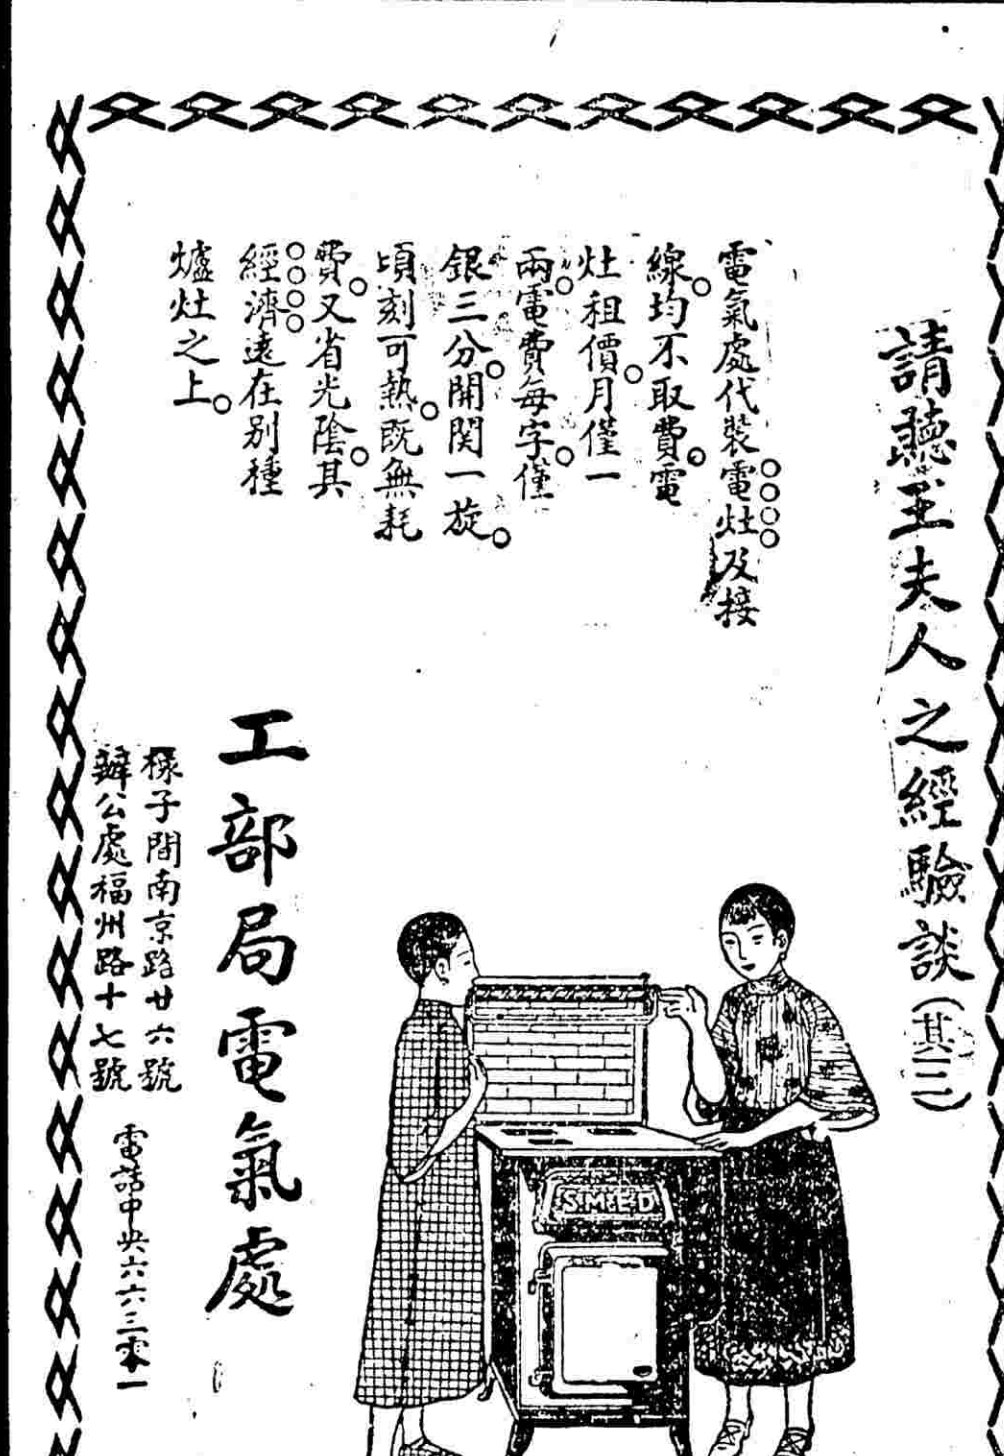 請聽王夫人之經驗談(其二)
電氣處代裝電灶及接
線。均不取費。電
灶租價。月僅一
兩。電費每字。僅
銀三分。開関一旋。
頃刻可熱。既無耗
費。又省光陰。其
經濟遠在別種
爐灶之上。
工部局電氣處
樣子間南京路廿六號
辦公處福州路十七號
電話中央六六三零一
S.M.E.D